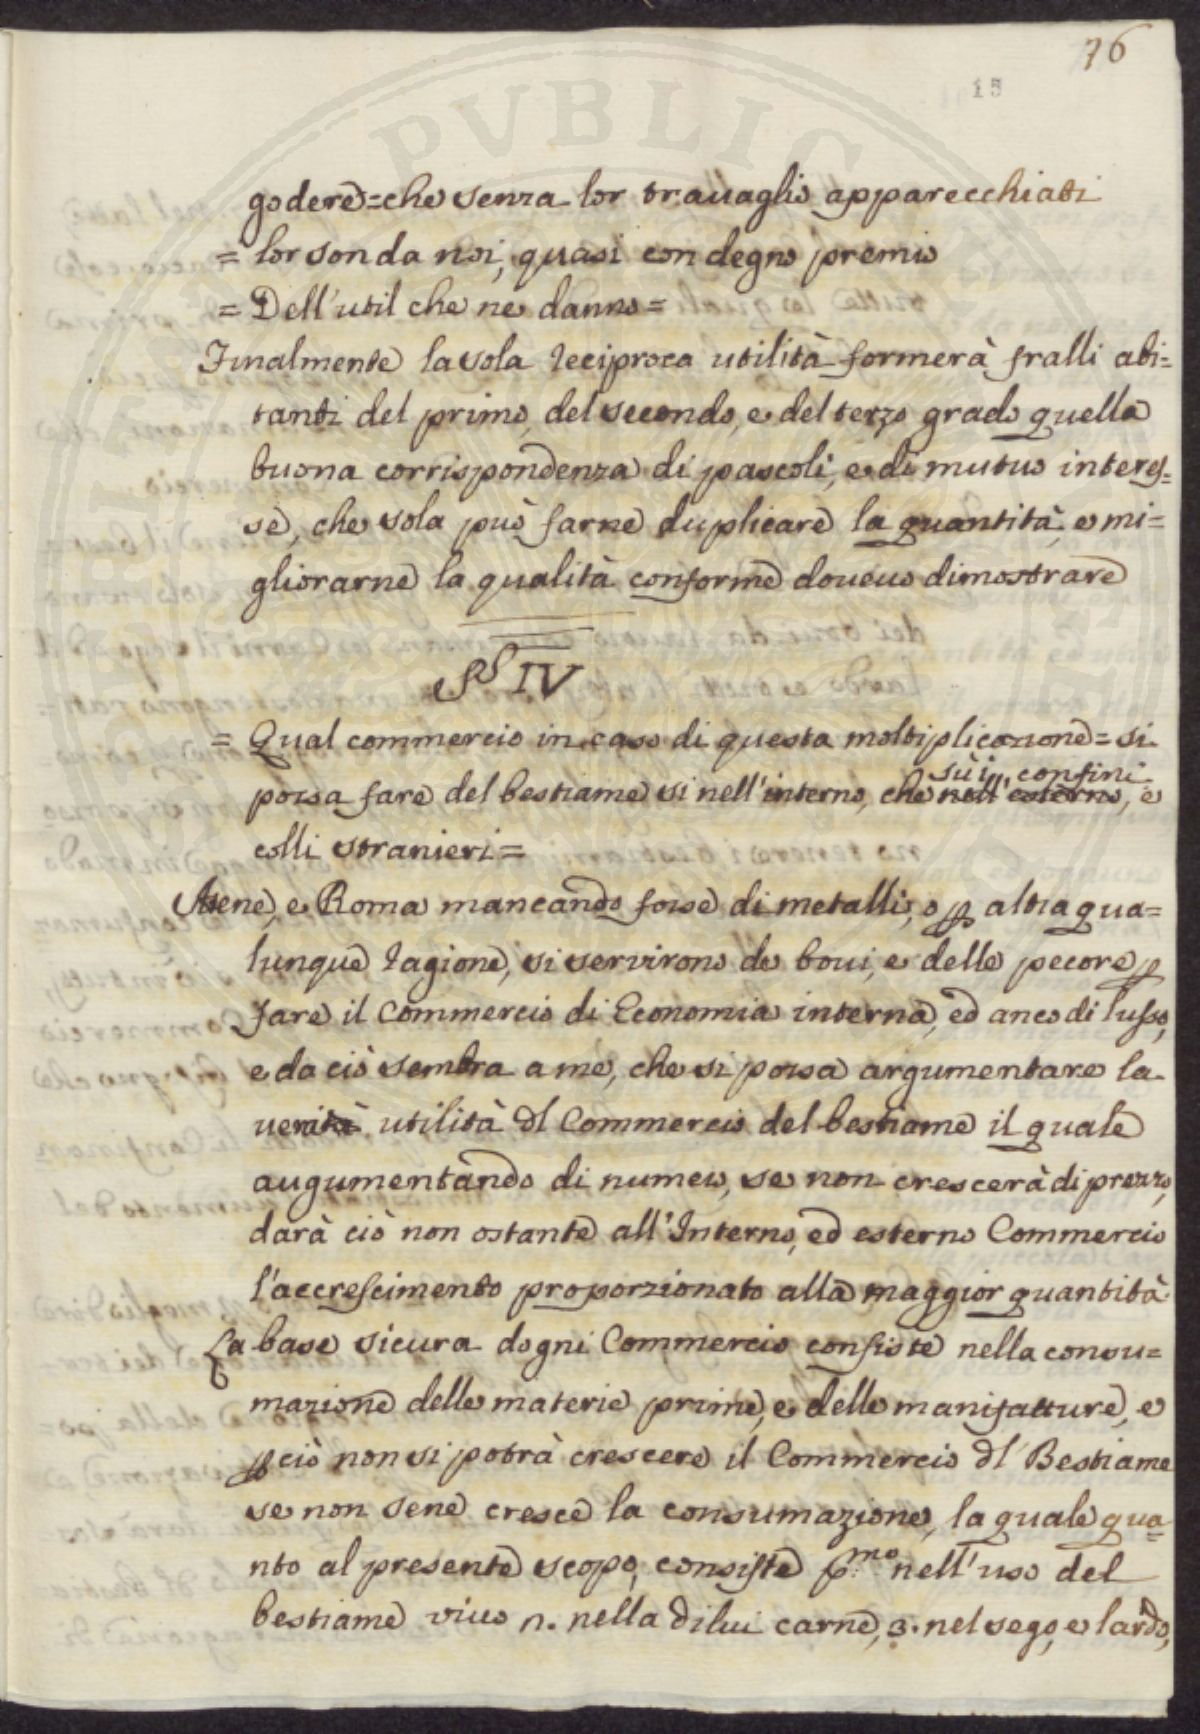 76
15
godere=che senza lor travaglio apparecchiati
= lor son da noi, quasi con degno premio
= Dell'util che ne danno=
Finalmente la sola reciproca utilità formerà fralli abi=
tanti del primo, del secondo, e del terzo grado quella
buona corrispondenza di pascoli, e di mutuo interes=
se, che sola può farne duplicare la quantità, e mi=
gliorarne la qualità conforme doveuo dimostrare
§ IV
= Qual commercio in caso di questa moltiplicazione=si
possa fare del bestiame si nell'interno, che nell'esterno, e
sùi confini
colli stranieri=
Atene, e Roma mancando forse di metalli, o p altra qua=
lunque ragione, si servirono de bovi, e delle pecore p
fare il Commercio di Economia interna, ed anco di lusso,
e da ciò sembra a me, che si possa argumentare la
verità utilità dl Commercio del bestiame il quale
augumentando di numero, se non crescerà di prezzo,
darà ciò non ostante all'Interno, ed esterno Commercio
l'accrescimento proporzionato alla maggior quantità
La base sicura dogni Commercio consiste nella consu=
mazione delle materie prime, e delle manifatture, e
pciò non si potrà crescere il Commercio dl Bestiame
se non sene cresce la consumazione, la quale qua=
nto al presente scopo, consiste p.mo nell'uso del
bestiame vivo n. nella di lui carne, 3. nel sego, e lardo,
PVBLIC